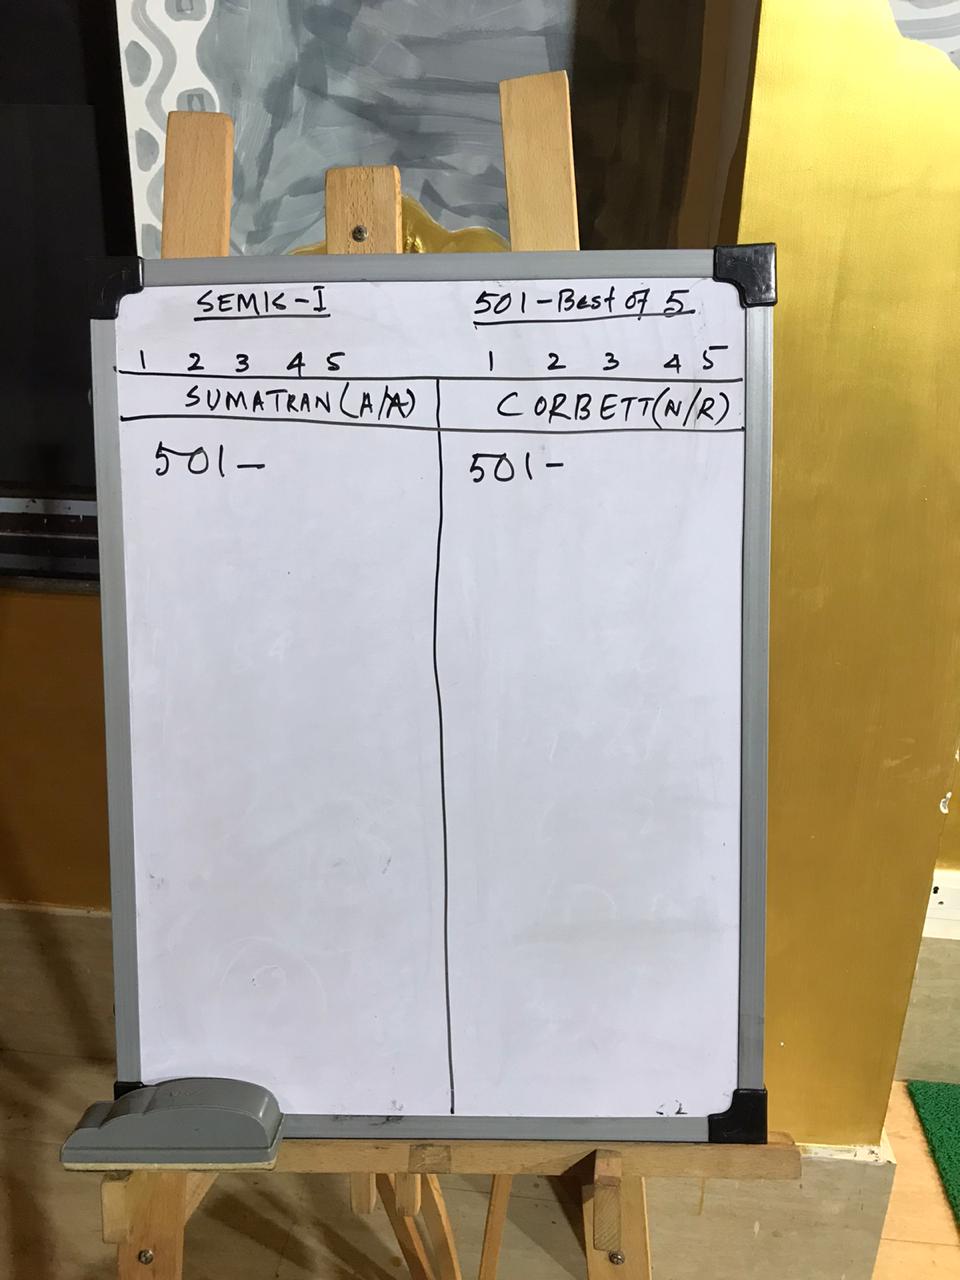 SEMIS-I 501-Best of 5
1 2 3 4 5 1 2 3 4 5
SUMATRAN (A/A) CORBETT (N/R)
501- 501-